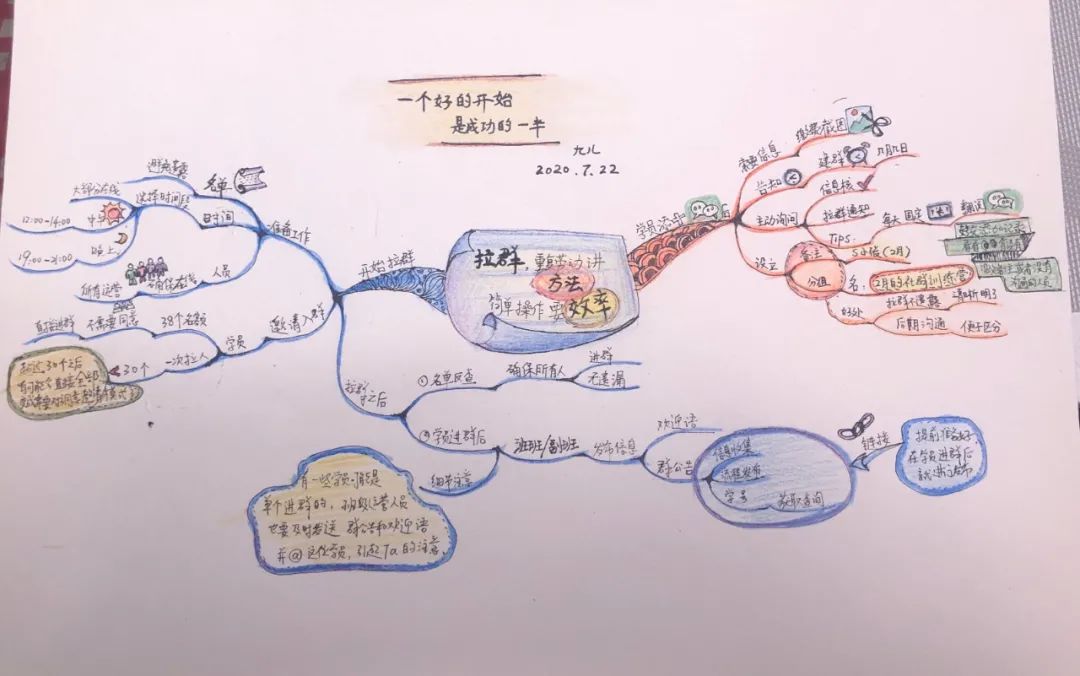 一个好的开始
是成功的一半
九儿
2020.7.22
拉群,重启动讲
方法
简单操作要效率
学员添加后
索要信息
报课截图
告知
建群
几月几日
信息核
主动询问
拉群通知
Tips:
每天 固定
翻阅
设立
备注
分组
5小倍(2月)
名:
2月的社群训练营
好处
拉群不遗漏
清晰明了
后期沟通
便于区分
开始拉群
准备工作
名单
避免遗漏
时间
选择时间段
大部分在线
12:00-14:00
中午
19:00-21:00
晚上
人员
确保在线
所有运营
邀请入群
学员
38个名额
不需要同意
直接进群
一次拉人
30个
超过30个之后
拉群
之后
①名单反查
确保所有人
进群
无遗漏
②学员进群后
班班/副班班
发布信息
欢迎语
群公告
信息收集
流程发布
学号
获取查询
链接
提前准备好
在学员进群后
就进行发布
细节注意
有一些学员可能是
单个进群的,班级运营人员
也要及时发送 群公告和欢迎语
并@这位学员,引起Ta的注意.